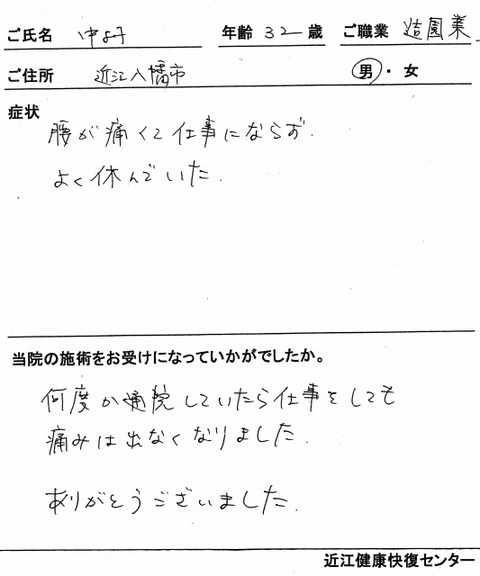 ご氏名 中好 年齢 32 歳 ご職業 造園業
ご住所 近江八幡市 男・女
症状
腰が痛くて仕事にならず.
よく休んでいた.
当院の施術をお受けになっていかがでしたか。
何度か通院していたら仕事をしても
痛みは出なくなりました.
ありがとうございました.
近江健康快復センター